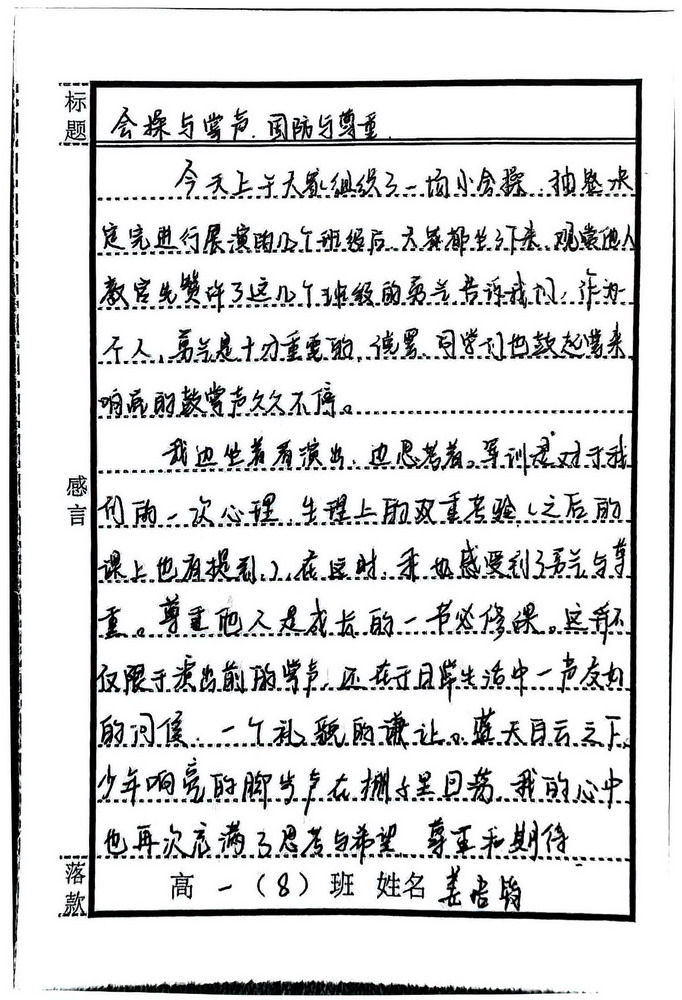 标题
会操与掌声 国防与尊重
今天上午大家组织了一场小会操,抽签决
定完进行展演的几个班级后,大家都坐了下来,观赏他人
教官先赞许了这几个班级的勇气告诉我们,作为
个人,勇气是十分重要的,说罢,同学们也鼓起掌来
响亮的鼓掌声久久不停。
我边坐着看演出,边思考着。军训是对于我
们而一次心理,生理上的双重考验(之后的
课上也有提到),在这时,我也感受到了勇气与尊
重。尊重他人是成长的一节必修课。这并不
仅限于演出前的掌声,还在于日常生活中一声友好
的问候,一个礼貌的谦让。蓝天白云之下,
少年响亮的脚步声在棚子里回荡,我的心中
也再次充满了思考与希望,尊重和期待
感言
落款
高一(8)班 姓名 姜